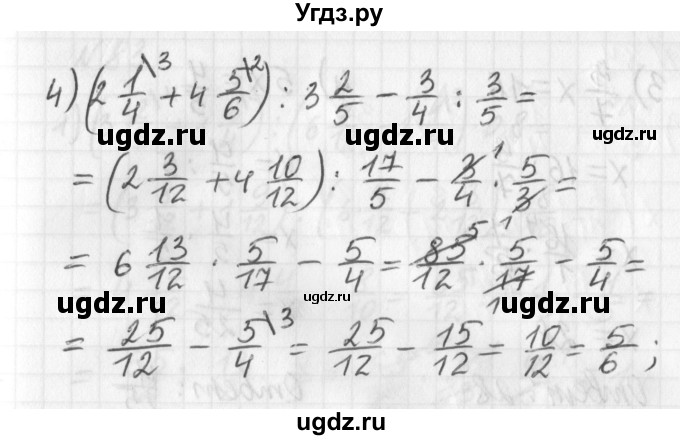 Угдз.ру
4) (2 1/4 \3 + 4 5/6 \2) : 3 2/5 − 3/4 : 3/5 =
ugdz.ru ugdz.ru
= (2 3/12 + 4 10/12) : 17/5 − 3/4 · 5/3 =
1 1
= 6 13/12 · 5/17 − 5/4 = 85/12 · 5/17 − 5/4 =
5 1
ugdz.ru ugdz.ru ugdz.ru
= 25/12 − 5/4 \3 = 25/12 − 15/12 = 10/12 = 5/6 ;
ugdz.ru